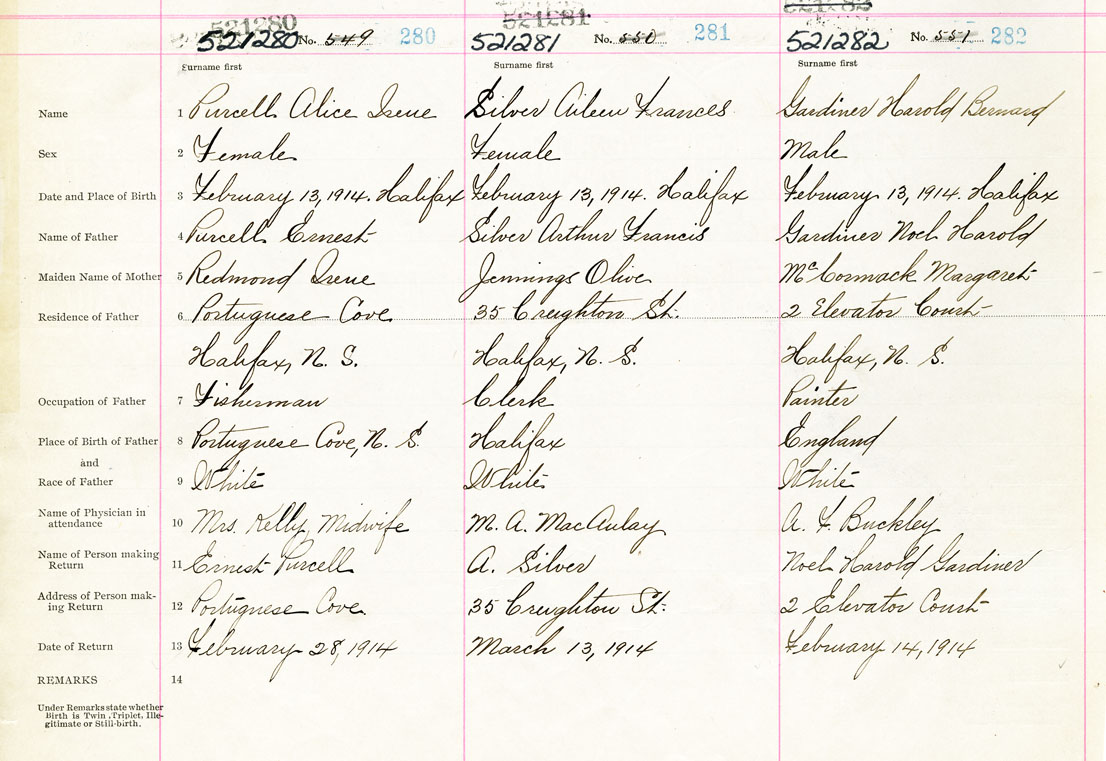 521280 521281
521280 No. 549 280 521281 No. 550 281 521282 No. 551 282
Surname first Surname first Surname first
Name 1 Purcell Alice Irene Silver Aileen Frances Gardiner Harold Bernard
Sex 2 Female Female Male
Date and Place of Birth 3 February 13, 1914. Halifax February 13, 1914. Halifax February 13, 1914. Halifax
Name of Father 4 Purcell Ernest Silver Arthur Francis Gardiner Noel Harold
Maiden Name of Mother 5 Redmond Irene Jennings Olive McCormack Margaret
Residence of Father 6 Portuguese Cove 35 Creighton St. 2 Elevator Court
Halifax, N. S. Halifax, N. S. Halifax, N. S.
Occupation of Father 7 Fisherman Clerk Painter
Place of Birth of Father 8 Portuguese Cove, N. S. Halifax England
and
Race of Father 9 White White White
Name of Physician in
attendance 10 Mrs. Kelly, Midwife M. A. MacAulay A. F. Buckley
Name of Person making
Return 11 Ernest Purcell A. Silver Noel Harold Gardiner
Address of Person mak-
ing Return 12 Portuguese Cove 35 Creighton St. 2 Elevator Court
Date of Return 13 February 28, 1914 March 13, 1914 February 14, 1914
REMARKS 14
Under Remarks state whether
Birth is Twin, Triplet, Ille-
gitimate or Still-birth.